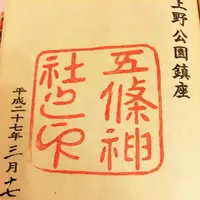 上野公園鎮座
五條神
社之印
平成二十七年三月十七